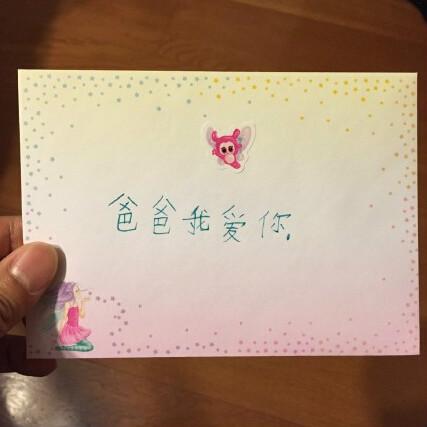 爸爸我爱你.